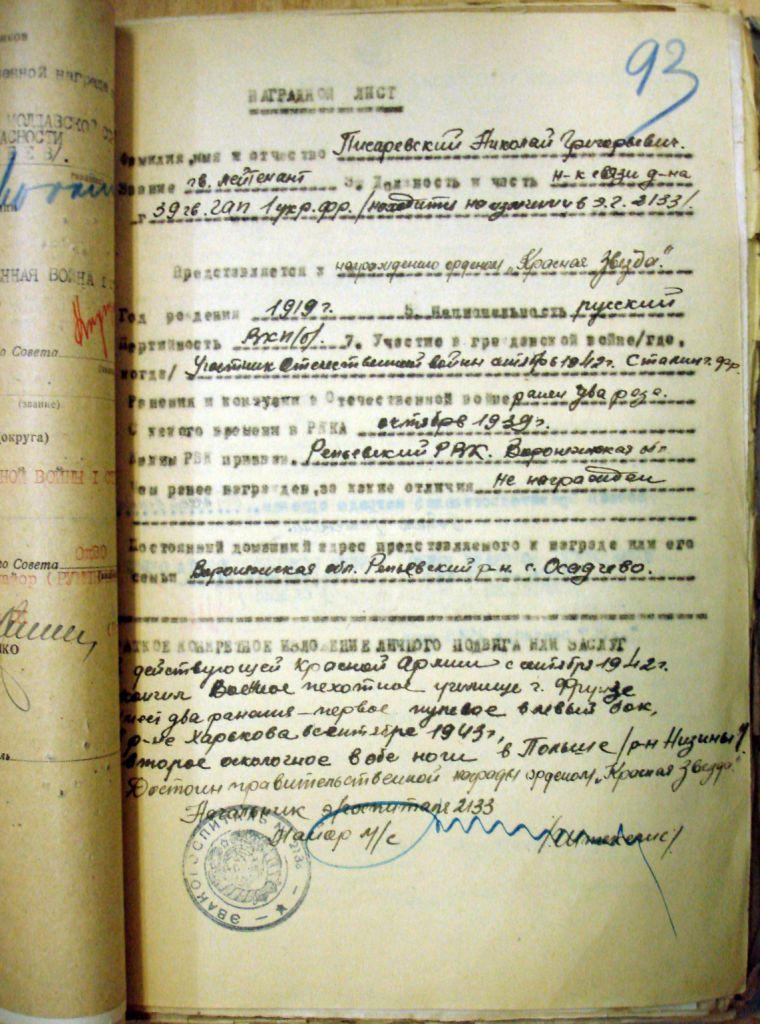 93
НАГРАДНОЙ ЛИСТ
Фамилия, имя и отчество Писаревский Николай Григорьевич.
Звание гв. лейтенант 3. Должность и часть н-к связи д-на
39 гв. ГАП 1 укр. фр. /находится на излечении в э.г. 2133/.
Представляется к награждению орденом „Красная Звезда."
Год рождения 1919 г. 5. Национальность русский
Партийность ВКП/б/. 7. Участие в гражданской войне/где,
когда/ Участник Отечественной войны с октября 1942 г. Сталингр. фр.
Ранения и контузии в Отечественной войне ранен два раза.
С какого времени в РККА октябрь 1939 г.
Каким РВК призван Репьевский РВК. Воронежская обл
Чем ранее награжден, за какие отличия не награжден
Постоянный домашний адрес представляемого к награде или его
семьи Воронежская обл. Репьевский р-н. с. Осадчево.
КРАТКОЕ КОНКРЕТНОЕ ИЗЛОЖЕНИЕ ЛИЧНОГО ПОДВИГА ИЛИ ЗАСЛУГ
действующей Красной Армии с октября 1942 г.
Военное пехотное училище г. Фрунзе
два ранения – первое пулевое в левый бок,
р-не Харькова в сентябре 1943 г,
второе осколочное в обе ноги в Польше /р-н Низины/.
Достоин правительственной награды орденом „Красная Звезда."
Начальник эвгоспиталя 2133
Майор м/с
ЭВАКОГОСПИТАЛЬ № 2133
МОЛДАВСКО
АСНОСТИ
ННАЯ ВОЙНА I
о Совета
(звание)
округа)
НОЙ ВОЙНЫ I
го Совета